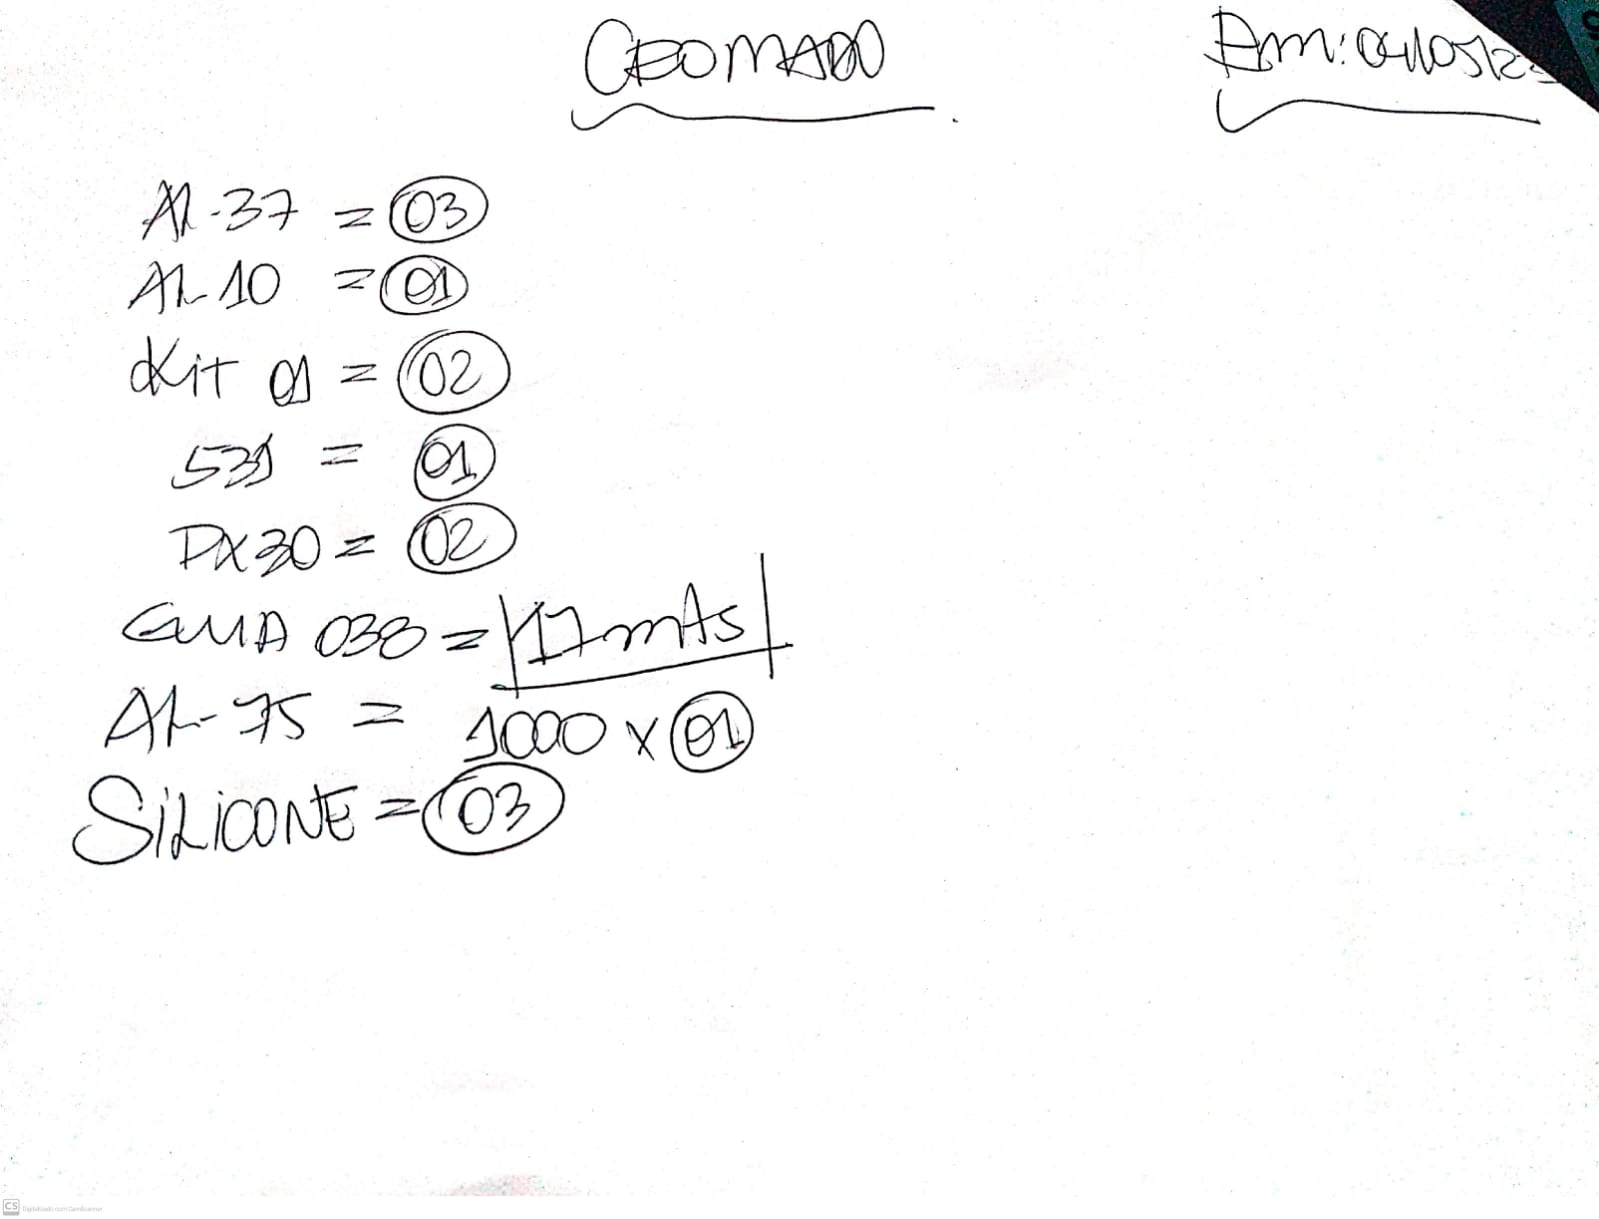 CROMADO
Em: 04/05/23
AL-37 = 03
AL-10 = 01
Kit 01 = 02
531 = 01
PX30 = 02
GUIA 038 = 17 mts
AL-75 = 1000 x 01
SiLiCONE = 03
CS Digitalizado com CamScanner